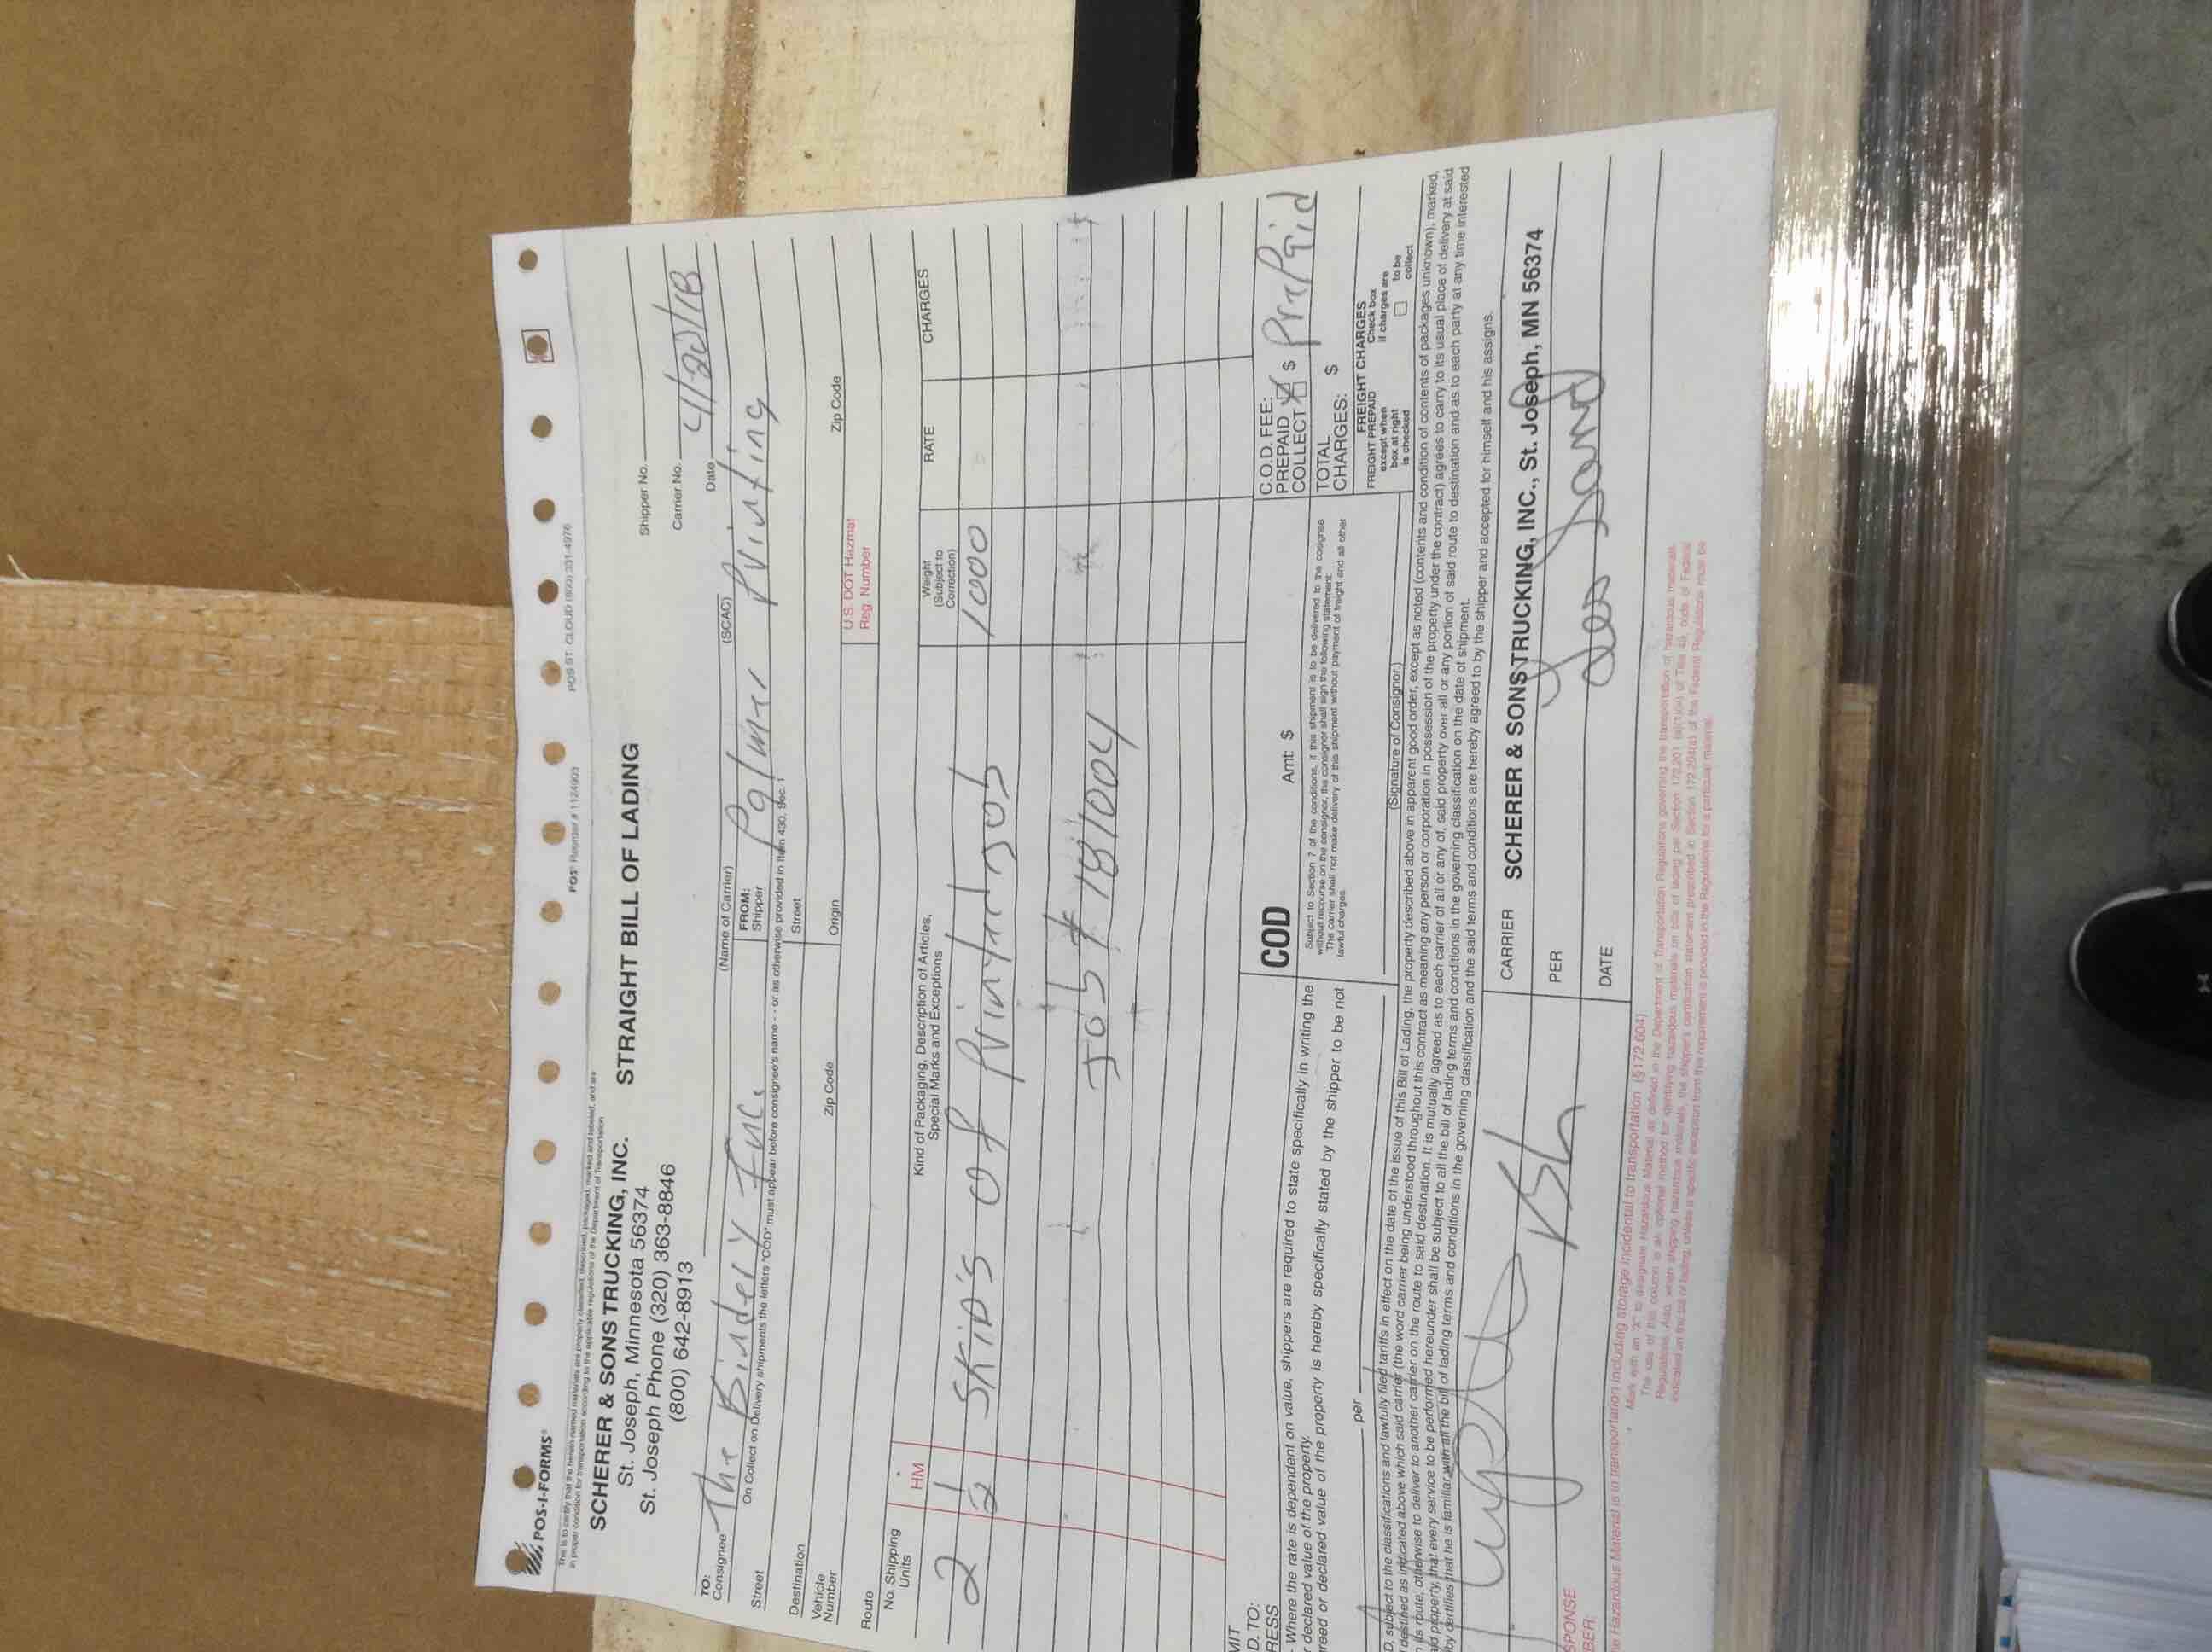 POS-I-FORMS®
POS® Reorder # 1124903
POS ST. CLOUD (800) 331-4976
This is to certify that the herein-named materials are properly classified, described, packaged, marked and labeled, and are
in proper condition for transportation according to the applicable regulations of the Department of Transportation
SCHERER & SONS TRUCKING, INC.
STRAIGHT BILL OF LADING
St. Joseph, Minnesota 56374
St. Joseph Phone (320) 363-8846
(800) 642-8913
Shipper No.
Carrier No.
Date 4/20/18
(Name of Carrier)
(SCAC)
TO:
Consignee The Bindery Inc.
FROM:
Shipper Palmer Printing
On Collect on Delivery shipments the letters "COD" must appear before consignee's name - - or as otherwise provided in Item 430, Sec. 1
Street
Street
Destination
Zip Code
Origin
Zip Code
Vehicle
Number
U.S. DOT Hazmat
Reg. Number
Route
No. Shipping
Units
HM
Kind of Packaging, Description of Articles,
Special Marks and Exceptions
Weight
(Subject to
Correction)
RATE
CHARGES
2
SKID's of Printed Job
1000
Job # 181004
COD
Amt: $
C.O.D. FEE:
PREPAID
COLLECT
$ PrePaid
Where the rate is dependent on value, shippers are required to state specifically in writing the
declared value of the property.
declared value of the property is hereby specifically stated by the shipper to be not
per
Subject to Section 7 of the conditions, if this shipment is to be delivered to the cosignee
without recourse on the consignor, the consignor shall sign the following statement:
The carrier shall not make delivery of this shipment without payment of freight and all other
lawful charges.
(Signature of Consignor.)
TOTAL
CHARGES: $
FREIGHT CHARGES
FREIGHT PREPAID
except when
box at right
is checked
Check box
if charges are
to be
collect
subject to the classifications and lawfully filed tariffs in effect on the date of the issue of this Bill of Lading, the property described above in apparent good order, except as noted (contents and condition of contents of packages unknown), marked,
destined as indicated above which said carrier (the word carrier being understood throughout this contract as meaning any person or corporation in possession of the property under the contract) agrees to carry to its usual place of delivery at said
its route, otherwise to deliver to another carrier on the route to said destination. It is mutually agreed as to each carrier of all or any of, said property over all or any portion of said route to destination and as to each party at any time interested
property, that every service to be performed hereunder shall be subject to all the bill of lading terms and conditions in the governing classification on the date of shipment.
certifies that he is familiar with all the bill of lading terms and conditions in the governing classification and the said terms and conditions are hereby agreed to by the shipper and accepted for himself and his assigns.
CARRIER SCHERER & SONS TRUCKING, INC., St. Joseph, MN 56374
PER
DATE
Hazardous Material is in transportation including storage incidental to transportation (§172.604)
Mark with an "X" to designate Hazardous Material as defined in the Department of Transportation Regulations governing the transportation of hazardous materials.
The use of this column is an optional method for identifying hazardous materials on bills of lading per Section 172.201 (a)(1)(iii) of Title 49, code of Federal
Regulations. Also, when shipping hazardous materials, the shipper's certification statement prescribed in Section 172.204(a) of the Federal Regulations must be
indicated on the bill of lading, unless a specific exception from the requirement is provided in the Regulations for a particular material.